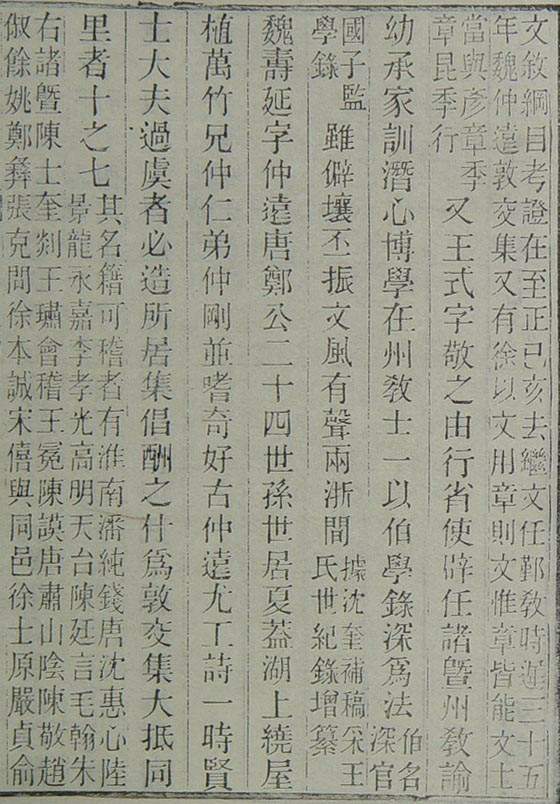 文敘綱目考證在至正己亥去繼文任鄞敎時遲三十五
年魏仲遠敦交集又有徐以文用章則文惟章皆能文士
當與彥章季
章昆季行
又王式字敬之由行省使辟任諸暨州敎諭
幼承家訓潛心博學在州敎士一以伯學錄深爲法
伯名
深官
國子監
學錄
雖僻壤丕振文風有聲兩浙間
據沈奎補稿采王
氏世紀錄增纂
魏壽延字仲遠唐鄭公二十四世孫世居夏葢湖上繞屋
植萬竹兄仲仁弟仲剛並嗜奇好古仲遠尤工詩一時賢
士大夫過虞者必造所居集倡酬之什爲敦交集大抵同
里者十之七
其名籍可稽者有淮南潘純錢唐沈惠心陸
景龍永嘉李孝光高明天台陳廷言毛翰朱
右諸暨陳士奎剡王璛會稽王冕陳謨唐肅山陰陳敬趙
俶餘姚鄭彝張克問徐本誠宋僖與同邑徐士原嚴貞俞